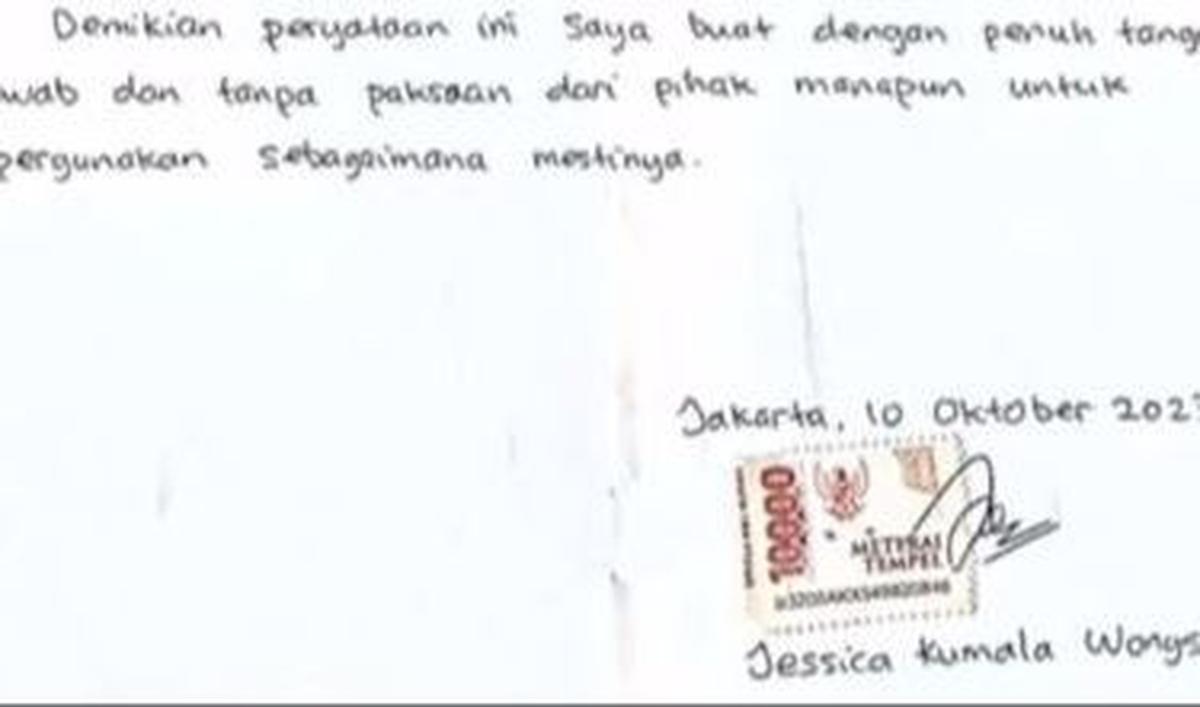 Demikian peryataan ini Saya buat dengan penuh tangg
wab dan tanpa paksaan dari pihak manapun untuk
pergunakan sebagaimana mestinya.
Jakarta, 10 Oktober 202
10000
METERAI
TEMPEL
Jessica Kumala Wongs